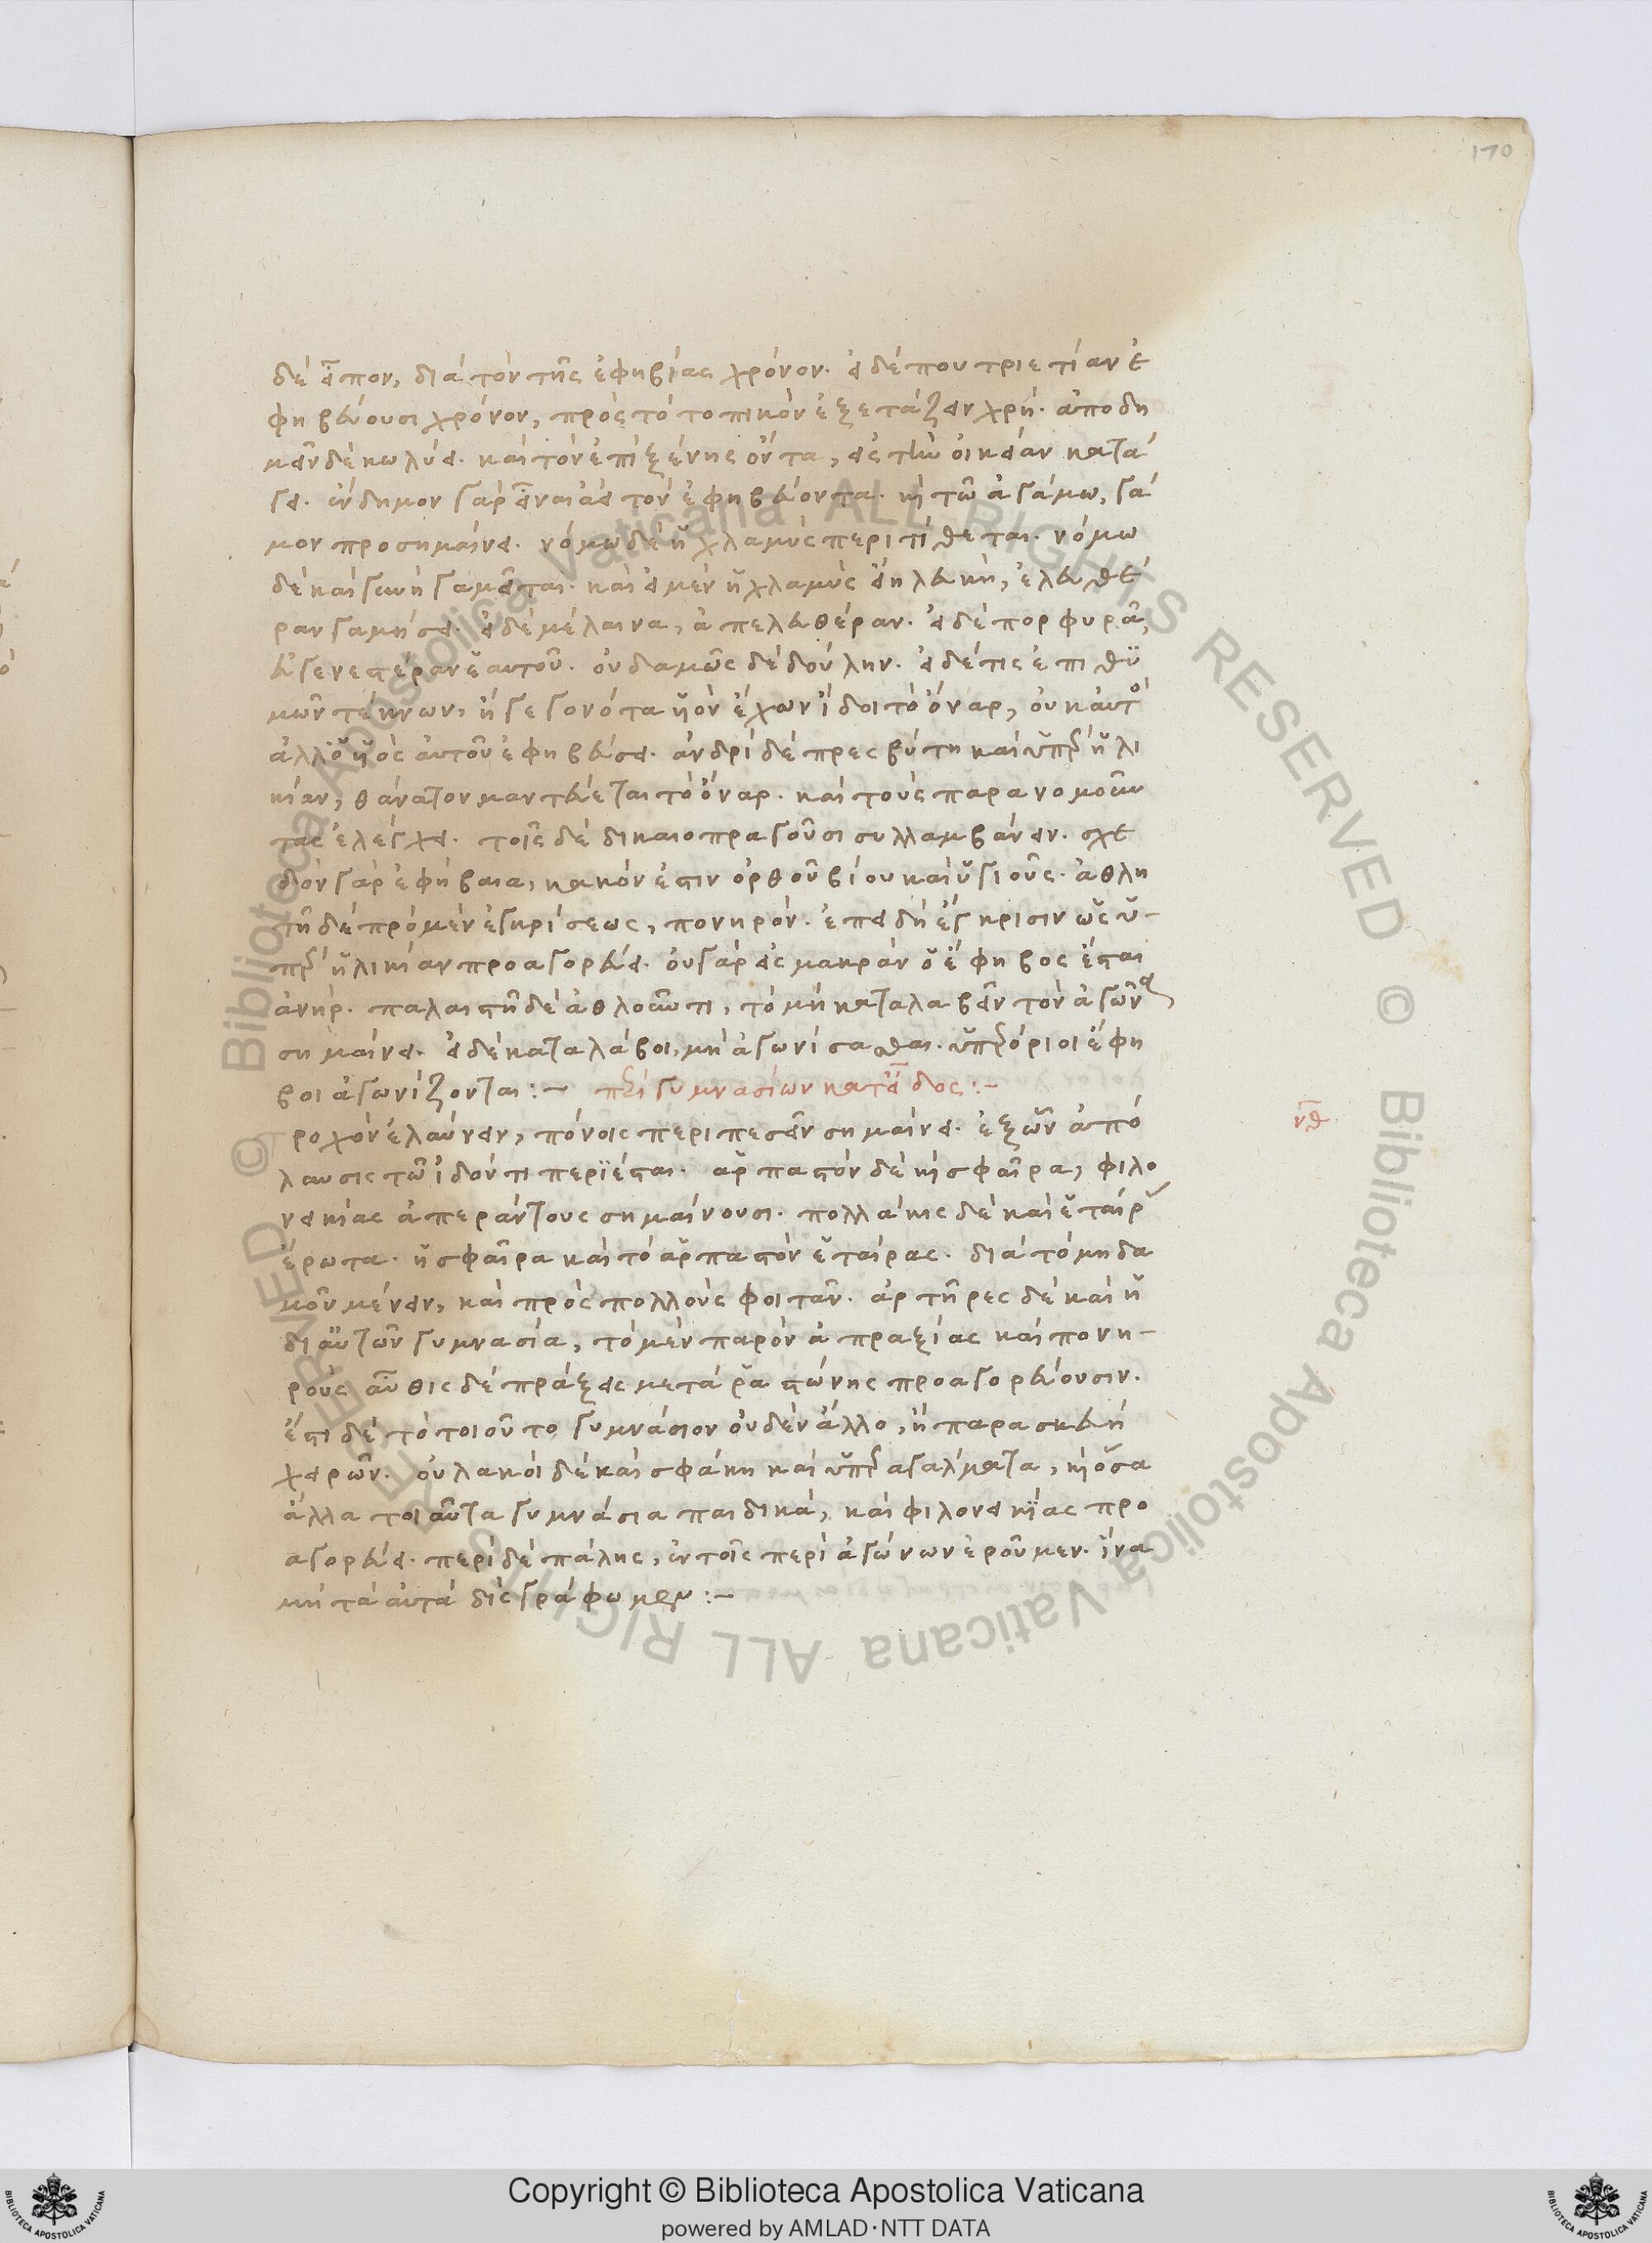 170
δὲ εἶπον, διὰ τὸν τῆς ἐφηβίας χρόνον. εἰ δέ που τριετίαν ἐ
φηβεύουσι χρόνον, πρὸς τὸ τοπικὸν ἐξετάζειν χρή. ἀποδη
μεῖν δὲ κωλύει. καὶ τὸν ἐπὶ ξένης ὄντα, εἰς τὴν οἰκείαν κατά
γει. ἔνδημον γὰρ εἶναι δεῖ τὸν ἐφηβεύοντα. καὶ τῶ ἀγάμω, γά
μον προσημαίνει. νόμω δὲ ἡ χλαμὺς περιτίθεται. νόμω
δὲ καὶ γυνὴ γαμεῖται. καὶ εἰ μὲν ἡ χλαμὺς εἴη λευκὴ, ἐλευθέ
ραν γαμήσει. εἰ δὲ μέλαινα, ἀπελευθέραν. εἰ δὲ πορφυρᾶ,
εὐγενεστέραν ἑαυτοῦ. οὐδαμῶς δὲ δούλην. εἰ δέ τις ἐπιθυ
μῶν τέκνων, ἢ γεγονότα υἱὸν ἔχων ἴδοι τὸ ὄναρ, οὐκ αὐτὸ
ἀλλ' ὁ υἱὸς αὐτοῦ ἐφηβεύσει. ἀνδρὶ δὲ πρεσβύτη καὶ ὑπὲρ ἡλι
κίαν, θάνατον μαντεύεται τὸ ὄναρ. καὶ τοὺς παρανομοῦν
τας ἐλέγχει. τοῖς δὲ δικαιοπραγοῦσι συλλαμβάνειν. σχε
δὸν γὰρ ἐφήβαια, κακόν ἐστιν ὀρθοῦ βίου καὶ ὑγιοῦς. ἀθλη
τῆ δὲ πρὸ μὲν ἐγκρίσεως, πονηρόν. ἐπειδὴ ἔγκρισιν ὡς ὑ-
πὲρ ἡλικίαν προαγορεύει. οὐ γὰρ εἰς μακρὰν ὁ ἔφηβος ἔσται
ἀνήρ. παλαιστῆ δὲ ἀθλοῦντι, τὸ μὴ καταλαβεῖν τὸν ἀγῶνα
σημαίνει. εἰ δὲ καταλάβοι, μὴ ἀγωνίσασθαι. ὑπερόριοι ἔφη
βοι ἀγωνίζονται:- περὶ γυμνασίων κατ' εἶδος:-
νθ
ροχὸν ἐλαύνειν, πόνοις περιπεσεῖν σημαίνει. ἐξ ὧν ἀπό
λαυσις τῶ ἰδόντι περιέσται. ἁρπαστὸν δὲ καὶ σφαῖρα, φιλο
νεικίας ἀπεράντους σημαίνουσι. πολλάκις δὲ καὶ ἑταίρας
ἔρωτα. ἡ σφαῖρα καὶ τὸ ἁρπαστὸν ἑταίρας. διὰ τὸ μηδα
μοῦ μένειν, καὶ πρὸς πολλοὺς φοιτᾶν. ἁρτῆρες δὲ καὶ ἡ
δι' αὐτῶν γυμνασία, τὸ μὲν παρὸν ἀπραξίας καὶ πονη-
ροὺς αὖθις δὲ πράξεις μετὰ ῥαστώνης προαγορεύουσιν.
ἔστι δὲ τὸ τοιοῦτο γυμνάσιον οὐδὲν ἄλλο, ἢ παρασκευὴ
χειρῶν. οὐλακοὶ δὲ καὶ σφάκη καὶ ὑπὲρ ἀγάλματα, καὶ ὅσα
ἄλλα τοιαῦτα γυμνάσια παιδικά, καὶ φιλονεικίας προ
αγορεύει. περὶ δὲ πάλης, ἐν τοῖς περὶ ἀγώνων ἐροῦμεν. ἵνα
μὴ τὰ αὐτὰ δὶς γράφωμεν:-
© Biblioteca Apostolica Vaticana ALL RIGHTS RESERVED © Biblioteca Apostolica Vaticana ALL RIGHTS RESERVED
Copyright © Biblioteca Apostolica Vaticana
powered by AMLAD·NTT DATA
BIBLIOTECA APOSTOLICA VATICANA
BIBLIOTECA APOSTOLICA VATICANA